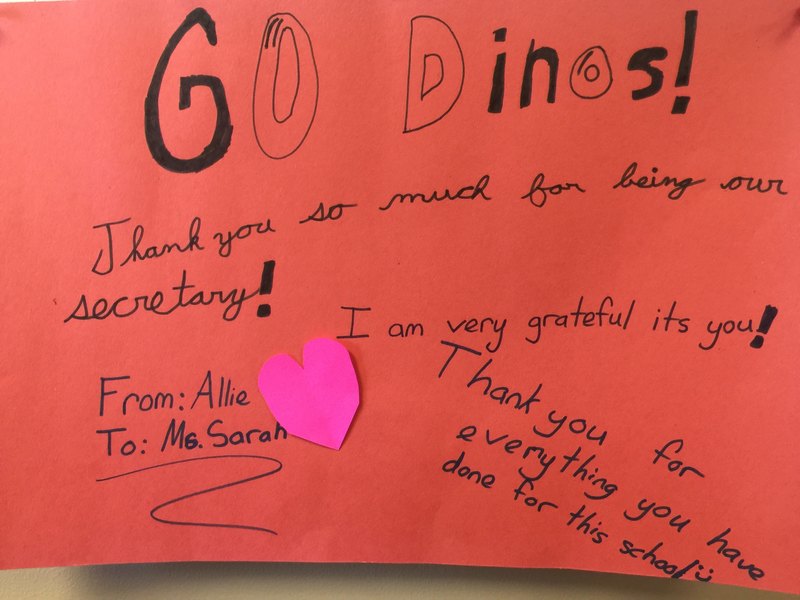 GO Dinos!
Thank you so much for being our
secretary!
I am very grateful its you!
From: Allie
To: Ms. Sarah
Thank you for
everything you have
done for this school